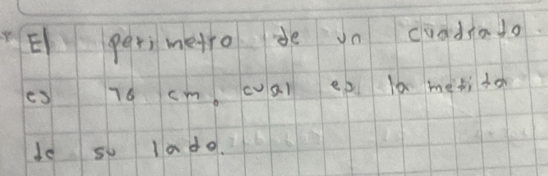 El perimetro de un cuadrado
es 76 cm, cual es la metida
de su lado.